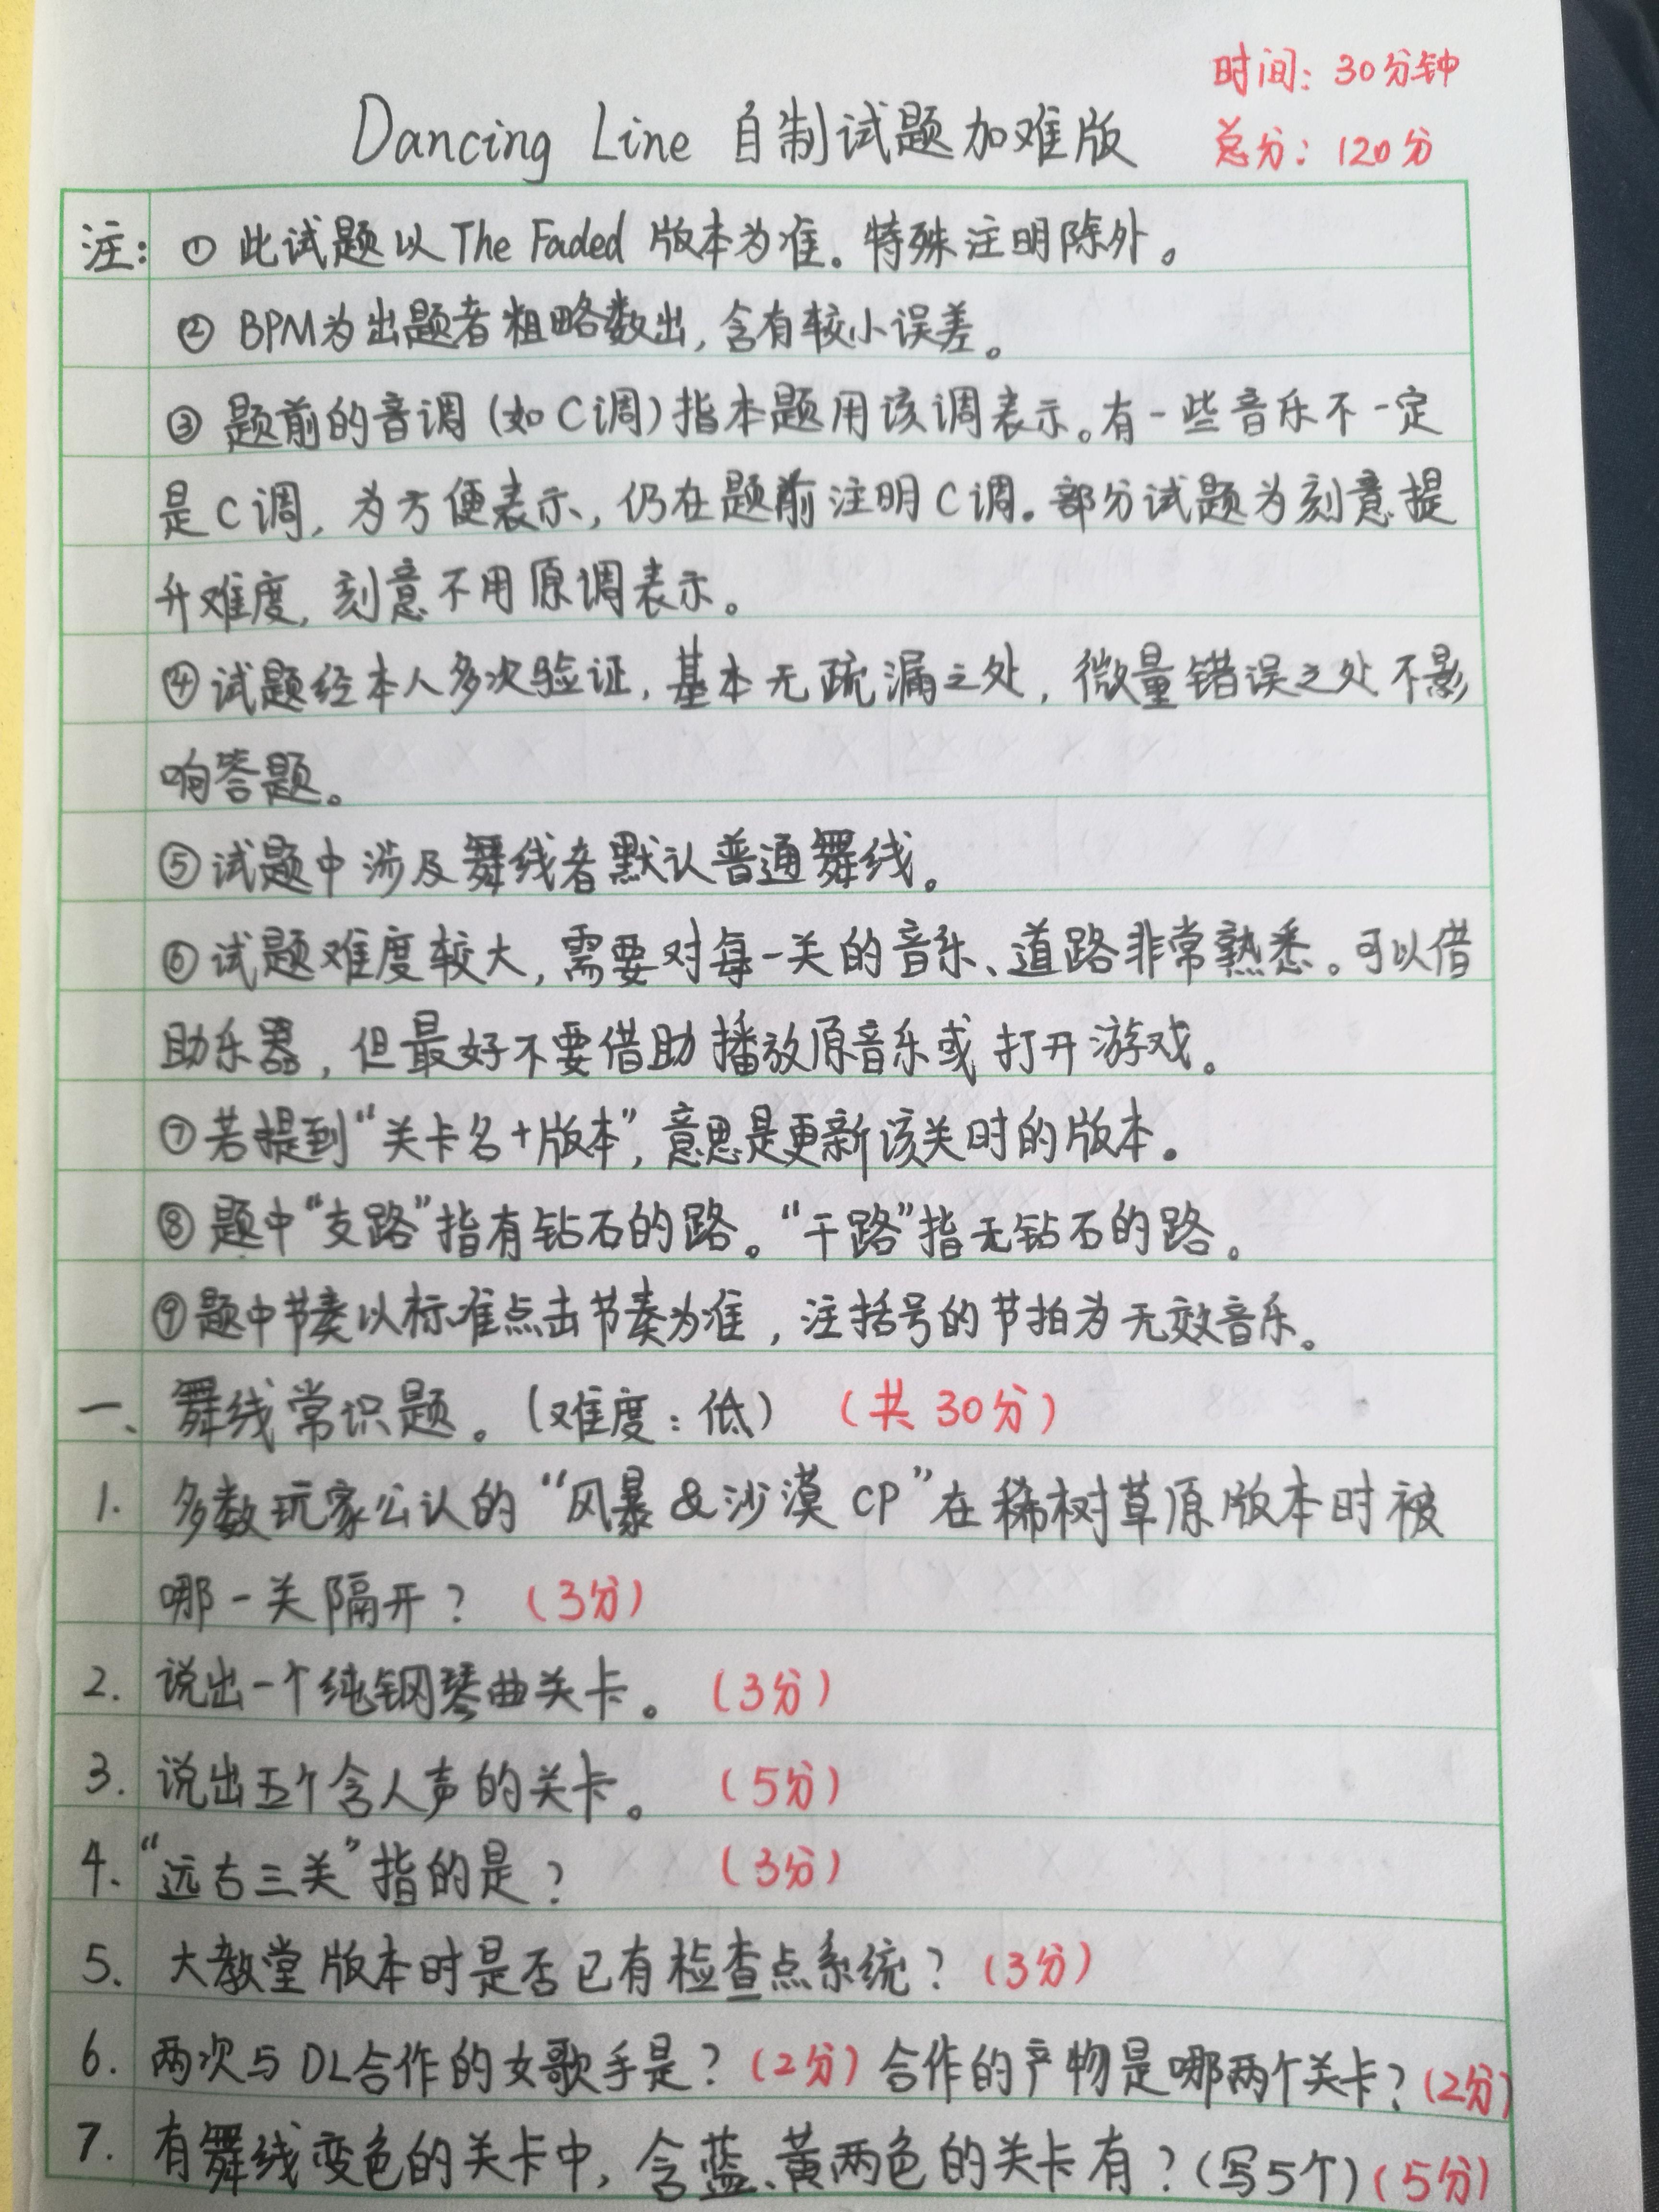 时间：30分钟
Dancing Line 自制试题加难版
总分：120分
注：① 此试题以 The Faded 版本为准。特殊注明除外。
② BPM为出题者粗略数出，含有较小误差。
③ 题前的音调（如C调）指本题用该调表示。有一些音乐不一定
是C调，为方便表示，仍在题前注明C调。部分试题为刻意提
升难度，刻意不用原调表示。
④试题经本人多次验证，基本无疏漏之处，微量错误之处不影
响答题。
⑤试题中涉及舞线者默认普通舞线。
⑥试题难度较大，需要对每一关的音乐、道路非常熟悉。可以借
助乐器，但最好不要借助播放原音乐或打开游戏。
⑦若提到“关卡名+版本”，意思是更新该关时的版本。
⑧题中“支路”指有钻石的路。“干路”指无钻石的路。
⑨题中节奏以标准点击节奏为准，注括号的节拍为无效音乐。
一、舞线常识题。（难度：低）（共30分）
1. 多数玩家公认的“风暴&沙漠CP”在稀树草原版本时被
哪一关隔开？（3分）
2. 说出一个纯钢琴曲关卡。（3分）
3. 说出五个含人声的关卡。（5分）
4. “远古三关”指的是？（3分）
5. 大教堂版本时是否已有检查点系统？（3分）
6. 两次与DL合作的女歌手是？（2分）合作的产物是哪两个关卡？（2分）
7. 有舞线变色的关卡中，含蓝、黄两色的关卡有？（写5个）（5分）